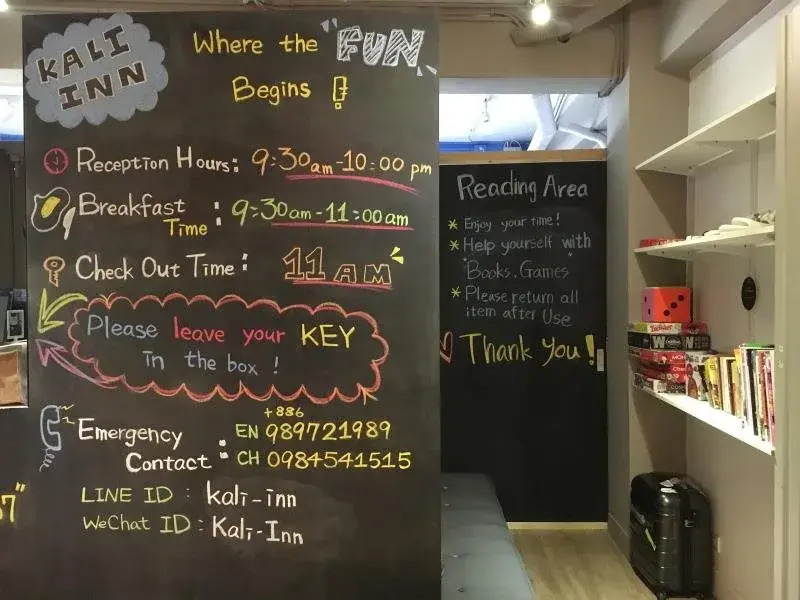 KALI
INN
Where the "FUN"
Begins !
Reception Hours: 9:30am-10:00 pm
Breakfast
Time : 9:30am-11:00am
Check Out Time: 11AM
Please leave your KEY
in the box !
Emergency
Contact :
+886
EN 989721989
CH 0984541515
LINE ID : kali-inn
WeChat ID : Kali-Inn
7"
Reading Area
* Enjoy your time!
* Help yourself with
"Books. Games"
* Please return all
item after Use
Thank You!